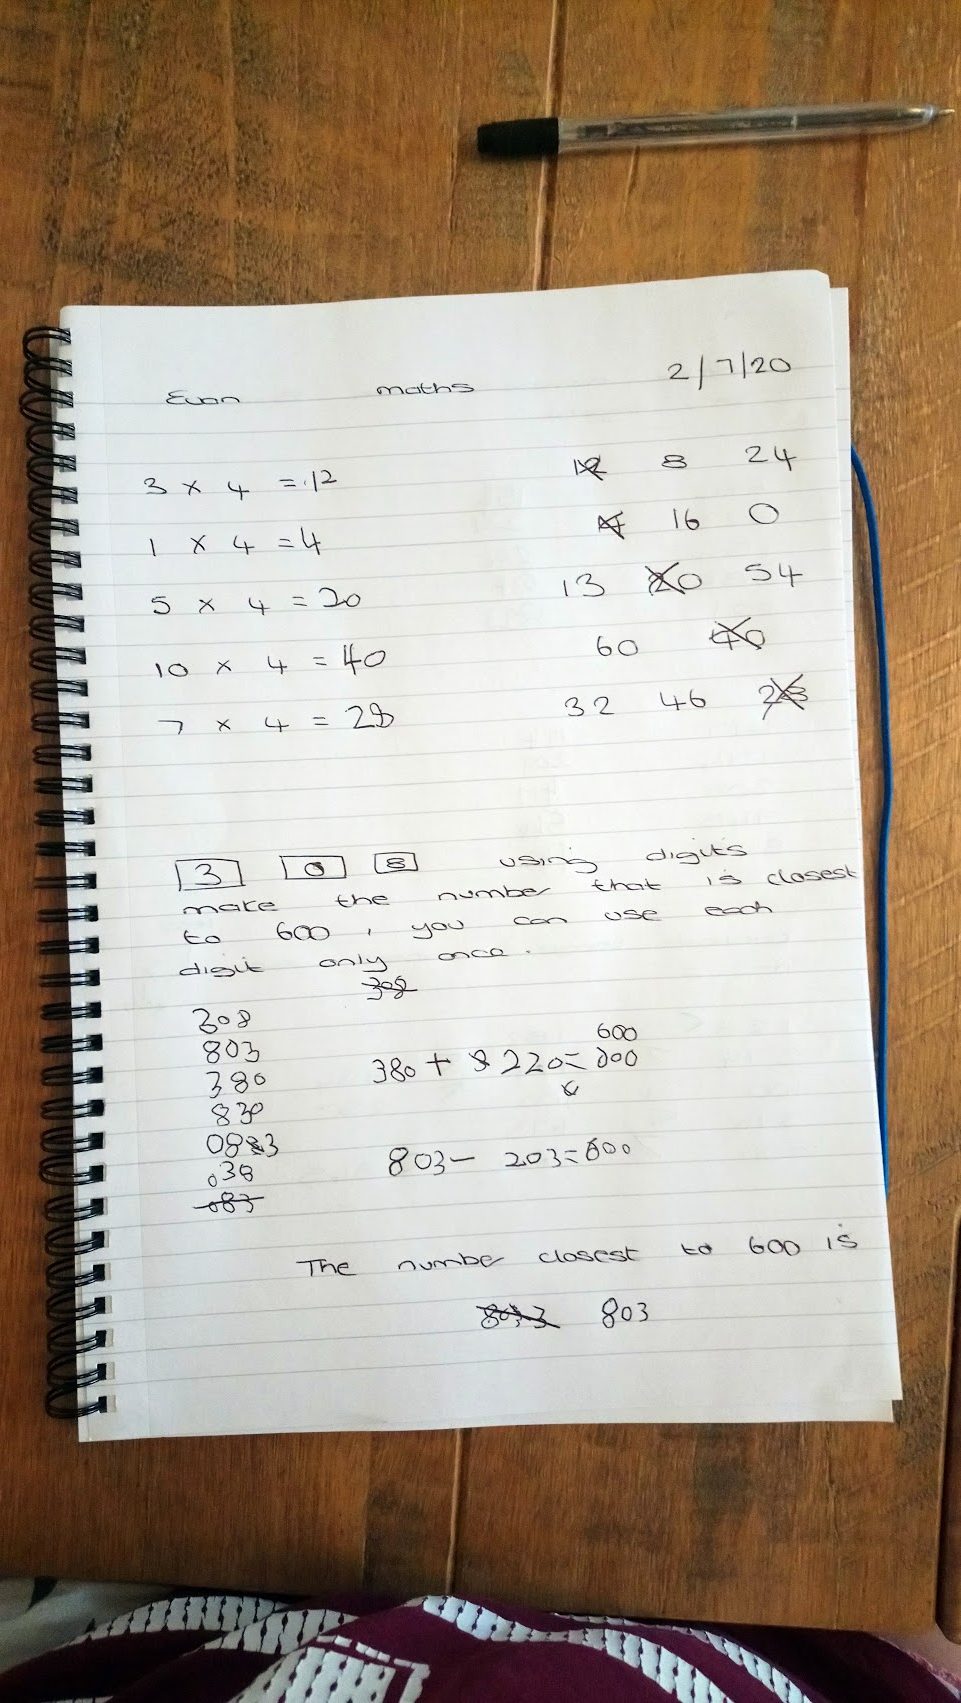 Evan maths 2/7/20
3 × 4 = 12 12 8 24
1 × 4 = 4 4 16 0
5 × 4 = 20 13 20 54
10 × 4 = 40 60 40
7 × 4 = 28 32 46 28
3 0 8 using digits
make the number that is closest
to 600, you can use each
digit only once.
308
308
803
380 + 220 = 600
380
830
083
803 - 203 = 600
038
083
The number closest to 600 is
803